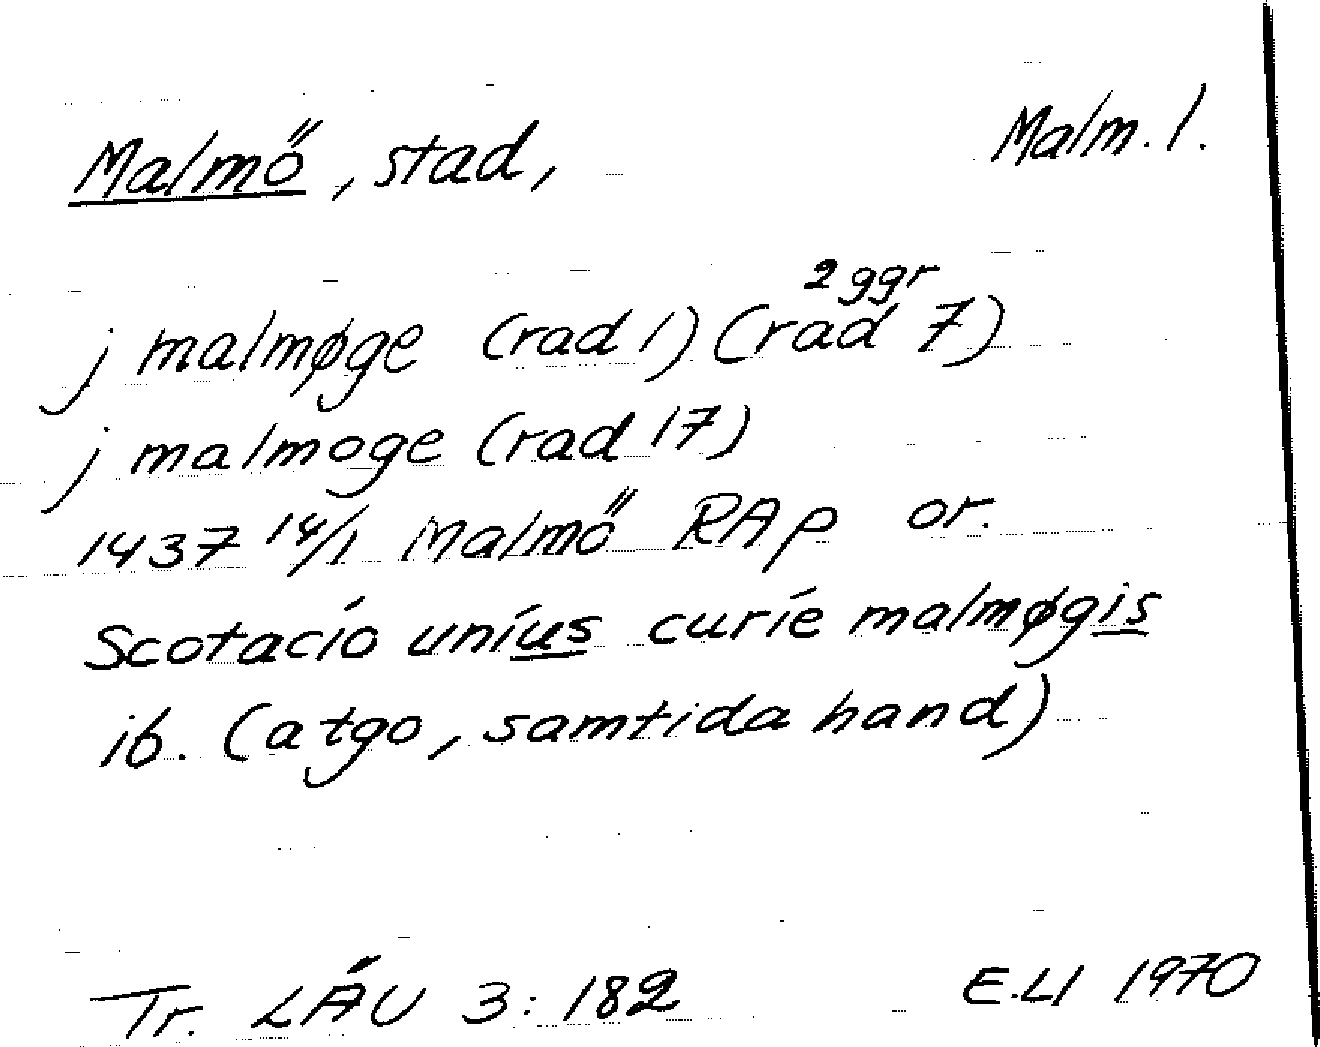 Malmö, stad, Malm. l.
2 ggr
j malmøge (rad 1) (rad 7)
j malmoge (rad 17)
1437 14/1 Malmö RAp or.
Scotacio unius curie malmøgis
ib. (atgo, samtida hand)
Tr. LÄU 3:182 E.LI 1970